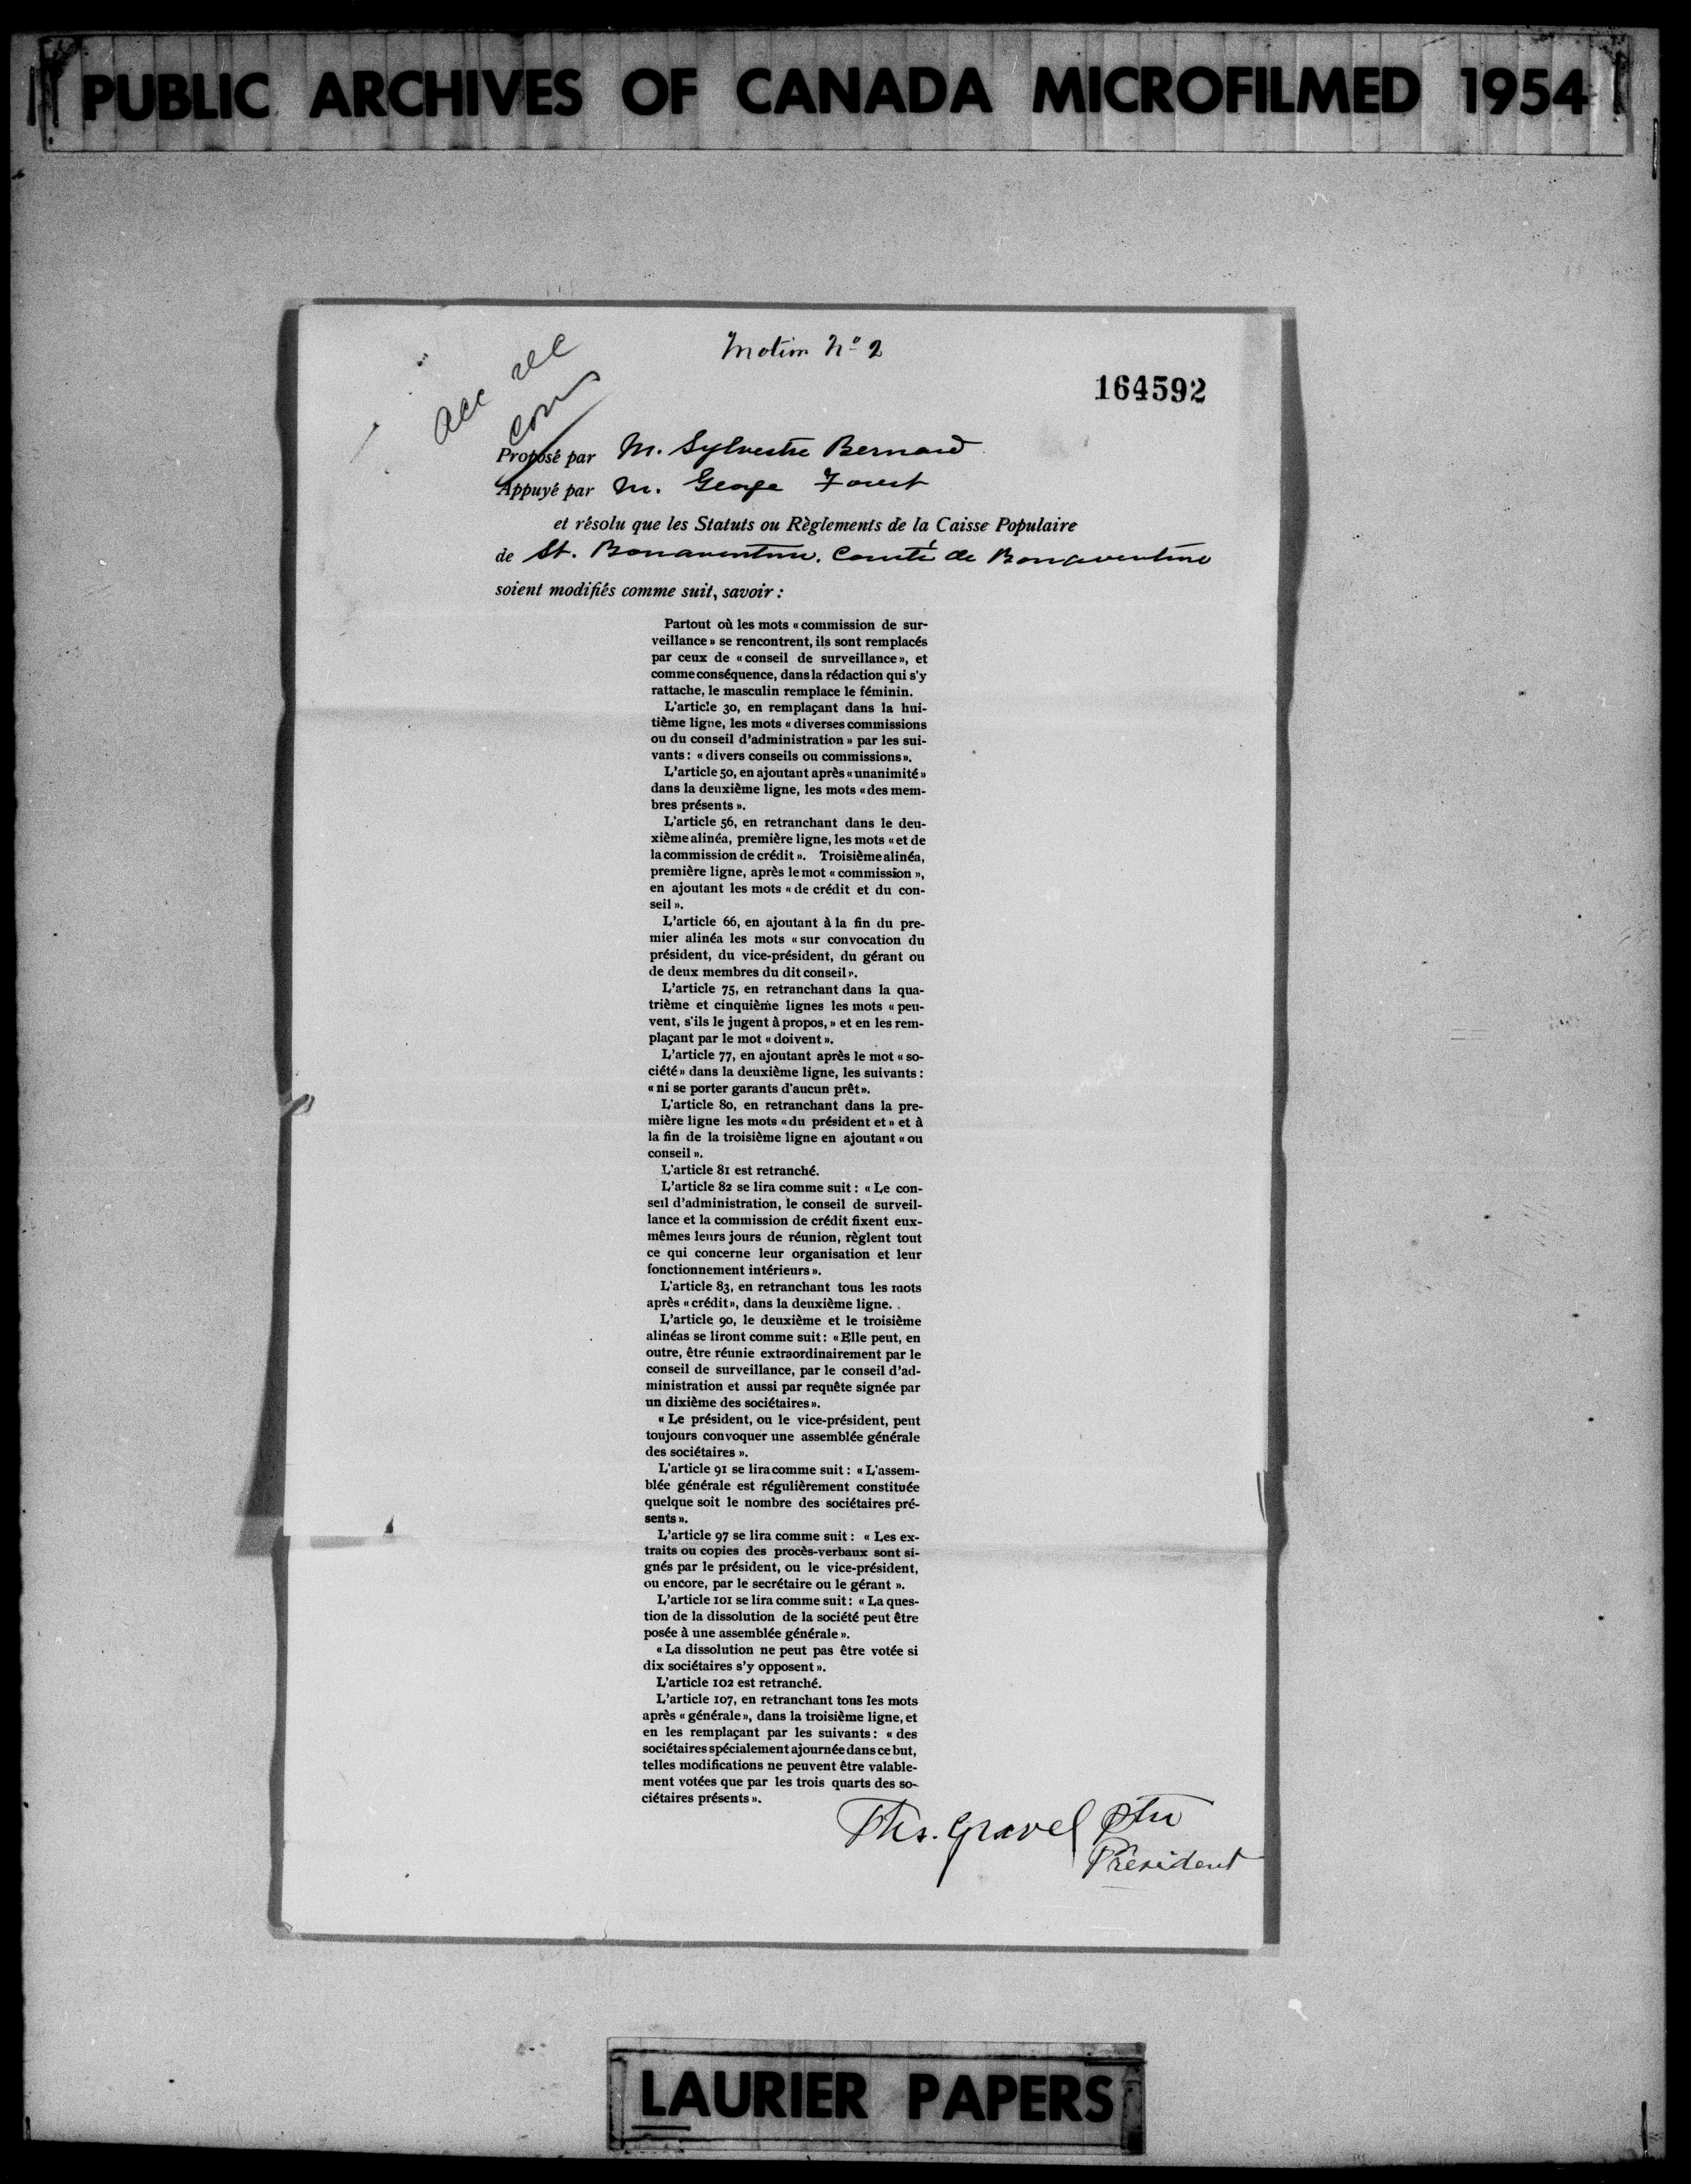 PUBLIC ARCHIVES OF CANADA MICROFILMED 1954
Motion No 2
164592
acc
Proposé par M. Sylvestre Bernard
Appuyé par M. George Forest
et résolu que les Statuts ou Règlements de la Caisse Populaire
de St. Bonaventure, Comté de Bonaventure
soient modifiés comme suit, savoir :
Partout où les mots « commission de sur-
veillance » se rencontrent, ils sont remplacés
par ceux de « conseil de surveillance », et
comme conséquence, dans la rédaction qui s'y
rattache, le masculin remplace le féminin.
L'article 30, en remplaçant dans la hui-
tième ligne, les mots « diverses commissions
ou du conseil d'administration » par les sui-
vants : « divers conseils ou commissions ».
L'article 50, en ajoutant après « unanimité »
dans la deuxième ligne, les mots « des mem-
bres présents ».
L'article 56, en retranchant dans le deu-
xième alinéa, première ligne, les mots « et de
la commission de crédit ». Troisième alinéa,
première ligne, après le mot « commission »,
en ajoutant les mots « de crédit et du con-
seil ».
L'article 66, en ajoutant à la fin du pre-
mier alinéa les mots « sur convocation du
président, du vice-président, du gérant ou
de deux membres du dit conseil ».
L'article 75, en retranchant dans la qua-
trième et cinquième lignes les mots « peu-
vent, s'ils le jugent à propos, » et en les rem-
plaçant par le mot « doivent ».
L'article 77, en ajoutant après le mot « so-
ciété » dans la deuxième ligne, les suivants :
« ni se porter garants d'aucun prêt ».
L'article 80, en retranchant dans la pre-
mière ligne les mots « du président et » et à
la fin de la troisième ligne en ajoutant « ou
conseil ».
L'article 81 est retranché.
L'article 82 se lira comme suit : « Le con-
seil d'administration, le conseil de surveil-
lance et la commission de crédit fixent eux-
mêmes leurs jours de réunion, règlent tout
ce qui concerne leur organisation et leur
fonctionnement intérieurs ».
L'article 83, en retranchant tous les mots
après « crédit », dans la deuxième ligne.
L'article 90, le deuxième et le troisième
alinéas se liront comme suit : « Elle peut, en
outre, être réunie extraordinairement par le
conseil de surveillance, par le conseil d'ad-
ministration et aussi par requête signée par
un dixième des sociétaires ».
« Le président, ou le vice-président, peut
toujours convoquer une assemblée générale
des sociétaires ».
L'article 91 se lira comme suit : « L'assem-
blée générale est régulièrement constituée
quelque soit le nombre des sociétaires pré-
sents ».
L'article 97 se lira comme suit : « Les ex-
traits ou copies des procès-verbaux sont si-
gnés par le président, ou le vice-président,
ou encore, par le secrétaire ou le gérant ».
L'article 101 se lira comme suit : « La ques-
tion de la dissolution de la société peut être
posée à une assemblée générale ».
« La dissolution ne peut pas être votée si
dix sociétaires s'y opposent ».
L'article 102 est retranché.
L'article 107, en retranchant tous les mots
après « générale », dans la troisième ligne, et
en les remplaçant par les suivants : « des
sociétaires spécialement ajournée dans ce but,
telles modifications ne peuvent être valable-
ment votées que par les trois quarts des so-
ciétaires présents ».
Ths. Gravel Ptre
Président
LAURIER PAPERS